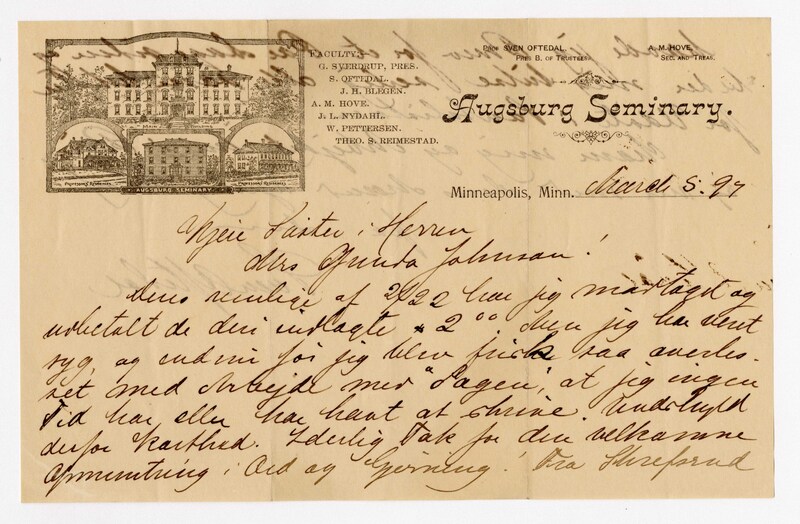 FACULTY:
G. SVERDRUP, PRES.
S. OFTEDAL.
J. H. BLEGEN.
A. M. HOVE.
J. L. NYDAHL.
W. PETTERSEN.
THEO. S. REIMESTAD.
AUGSBURG SEMINARY
PROF. SVEN OFTEDAL.
PRES B. OF TRUSTEES.
A. M. HOVE,
SEC. AND TREAS.
Augsburg Seminary.
Minneapolis, Minn. March 5. 97
Kjere Søster i Herren
Mrs Gunda Johnson!
Deres venlige af 2222 har jeg modtaget og
udbetalt de deri indlagte 2 00. Men jeg har vært
syg, og endnu før jeg blev frisk saa overles-
set med Arbejde med "Sagen", at jeg ingen
Tid har eller har havt at skrive. Undskyld
derfor Korthed. Hderlig Tak for den velkomne
Opmuntring i Ord og Gjerning! Fra Skrefsrud